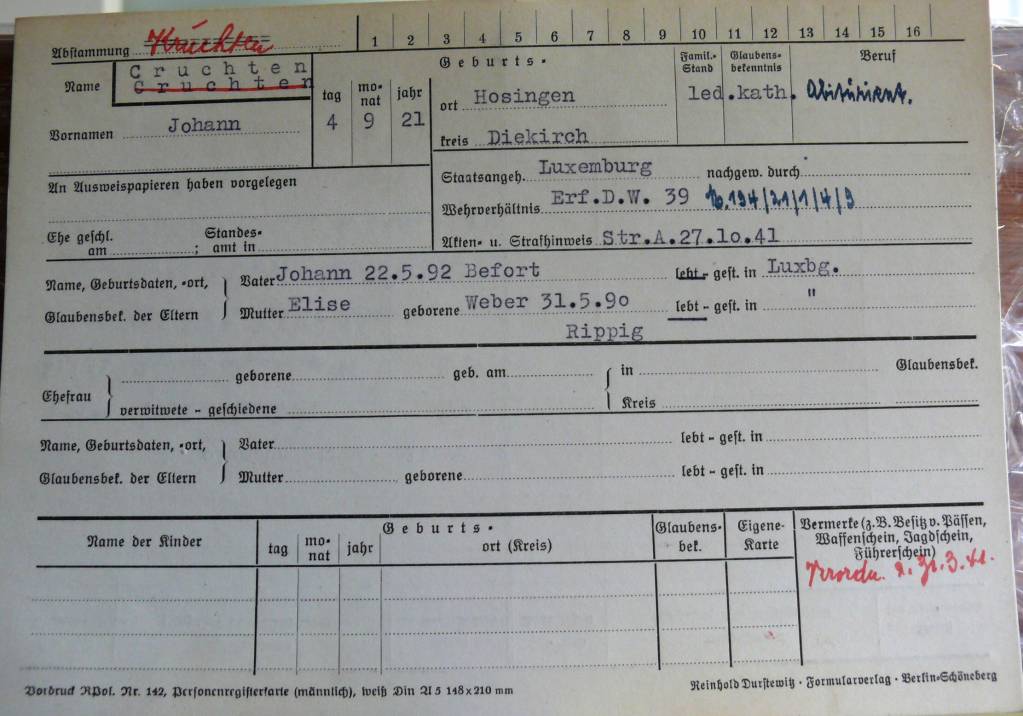 Abstammung Kruchten 1 2 3 4 5 6 7 8 9 10 11 12 13 14 15 16
Name Cruchten
Cruchten
tag monat jahr
Geburts-
Famil.-Stand
Glaubensbekenntnis
Beruf
ort Hosingen led. kath. Abiturient.
Vornamen Johann 4 9 21
kreis Diekirch
An Ausweispapieren haben vorgelegen
Staatsangeh. Luxemburg nachgew. durch
Wehrverhältnis Erf.D.W. 39 194/21/1/4/9
Ehe geschl. am ; Standesamt in
Akten- u. Strafhinweis Str.A.27.10.41
Name, Geburtsdaten, -ort, Vater Johann 22.5.92 Befort lebt - gest. in Luxbg.
Glaubensbek. der Eltern Mutter Elise geborene Weber 31.5.90 lebt - gest. in "
Rippig
Ehefrau geborene geb. am in Glaubensbek.
verwitwete - geschiedene Kreis
Name, Geburtsdaten, -ort, Vater lebt - gest. in
Glaubensbek. der Eltern Mutter geborene lebt - gest. in
Name der Kinder
Geburts-
tag monat jahr ort (Kreis)
Glaubensbek.
Eigene-Karte
Vermerke (z.B. Besitz v. Pässen,
Waffenschein, Jagdschein,
Führerschein)
31.3.41.
Vordruck RPol. Nr. 142, Personenregisterkarte (männlich), weiß Din A 5 148x210 mm
Reinhold Durstewitz · Formularverlag · Berlin-Schöneberg